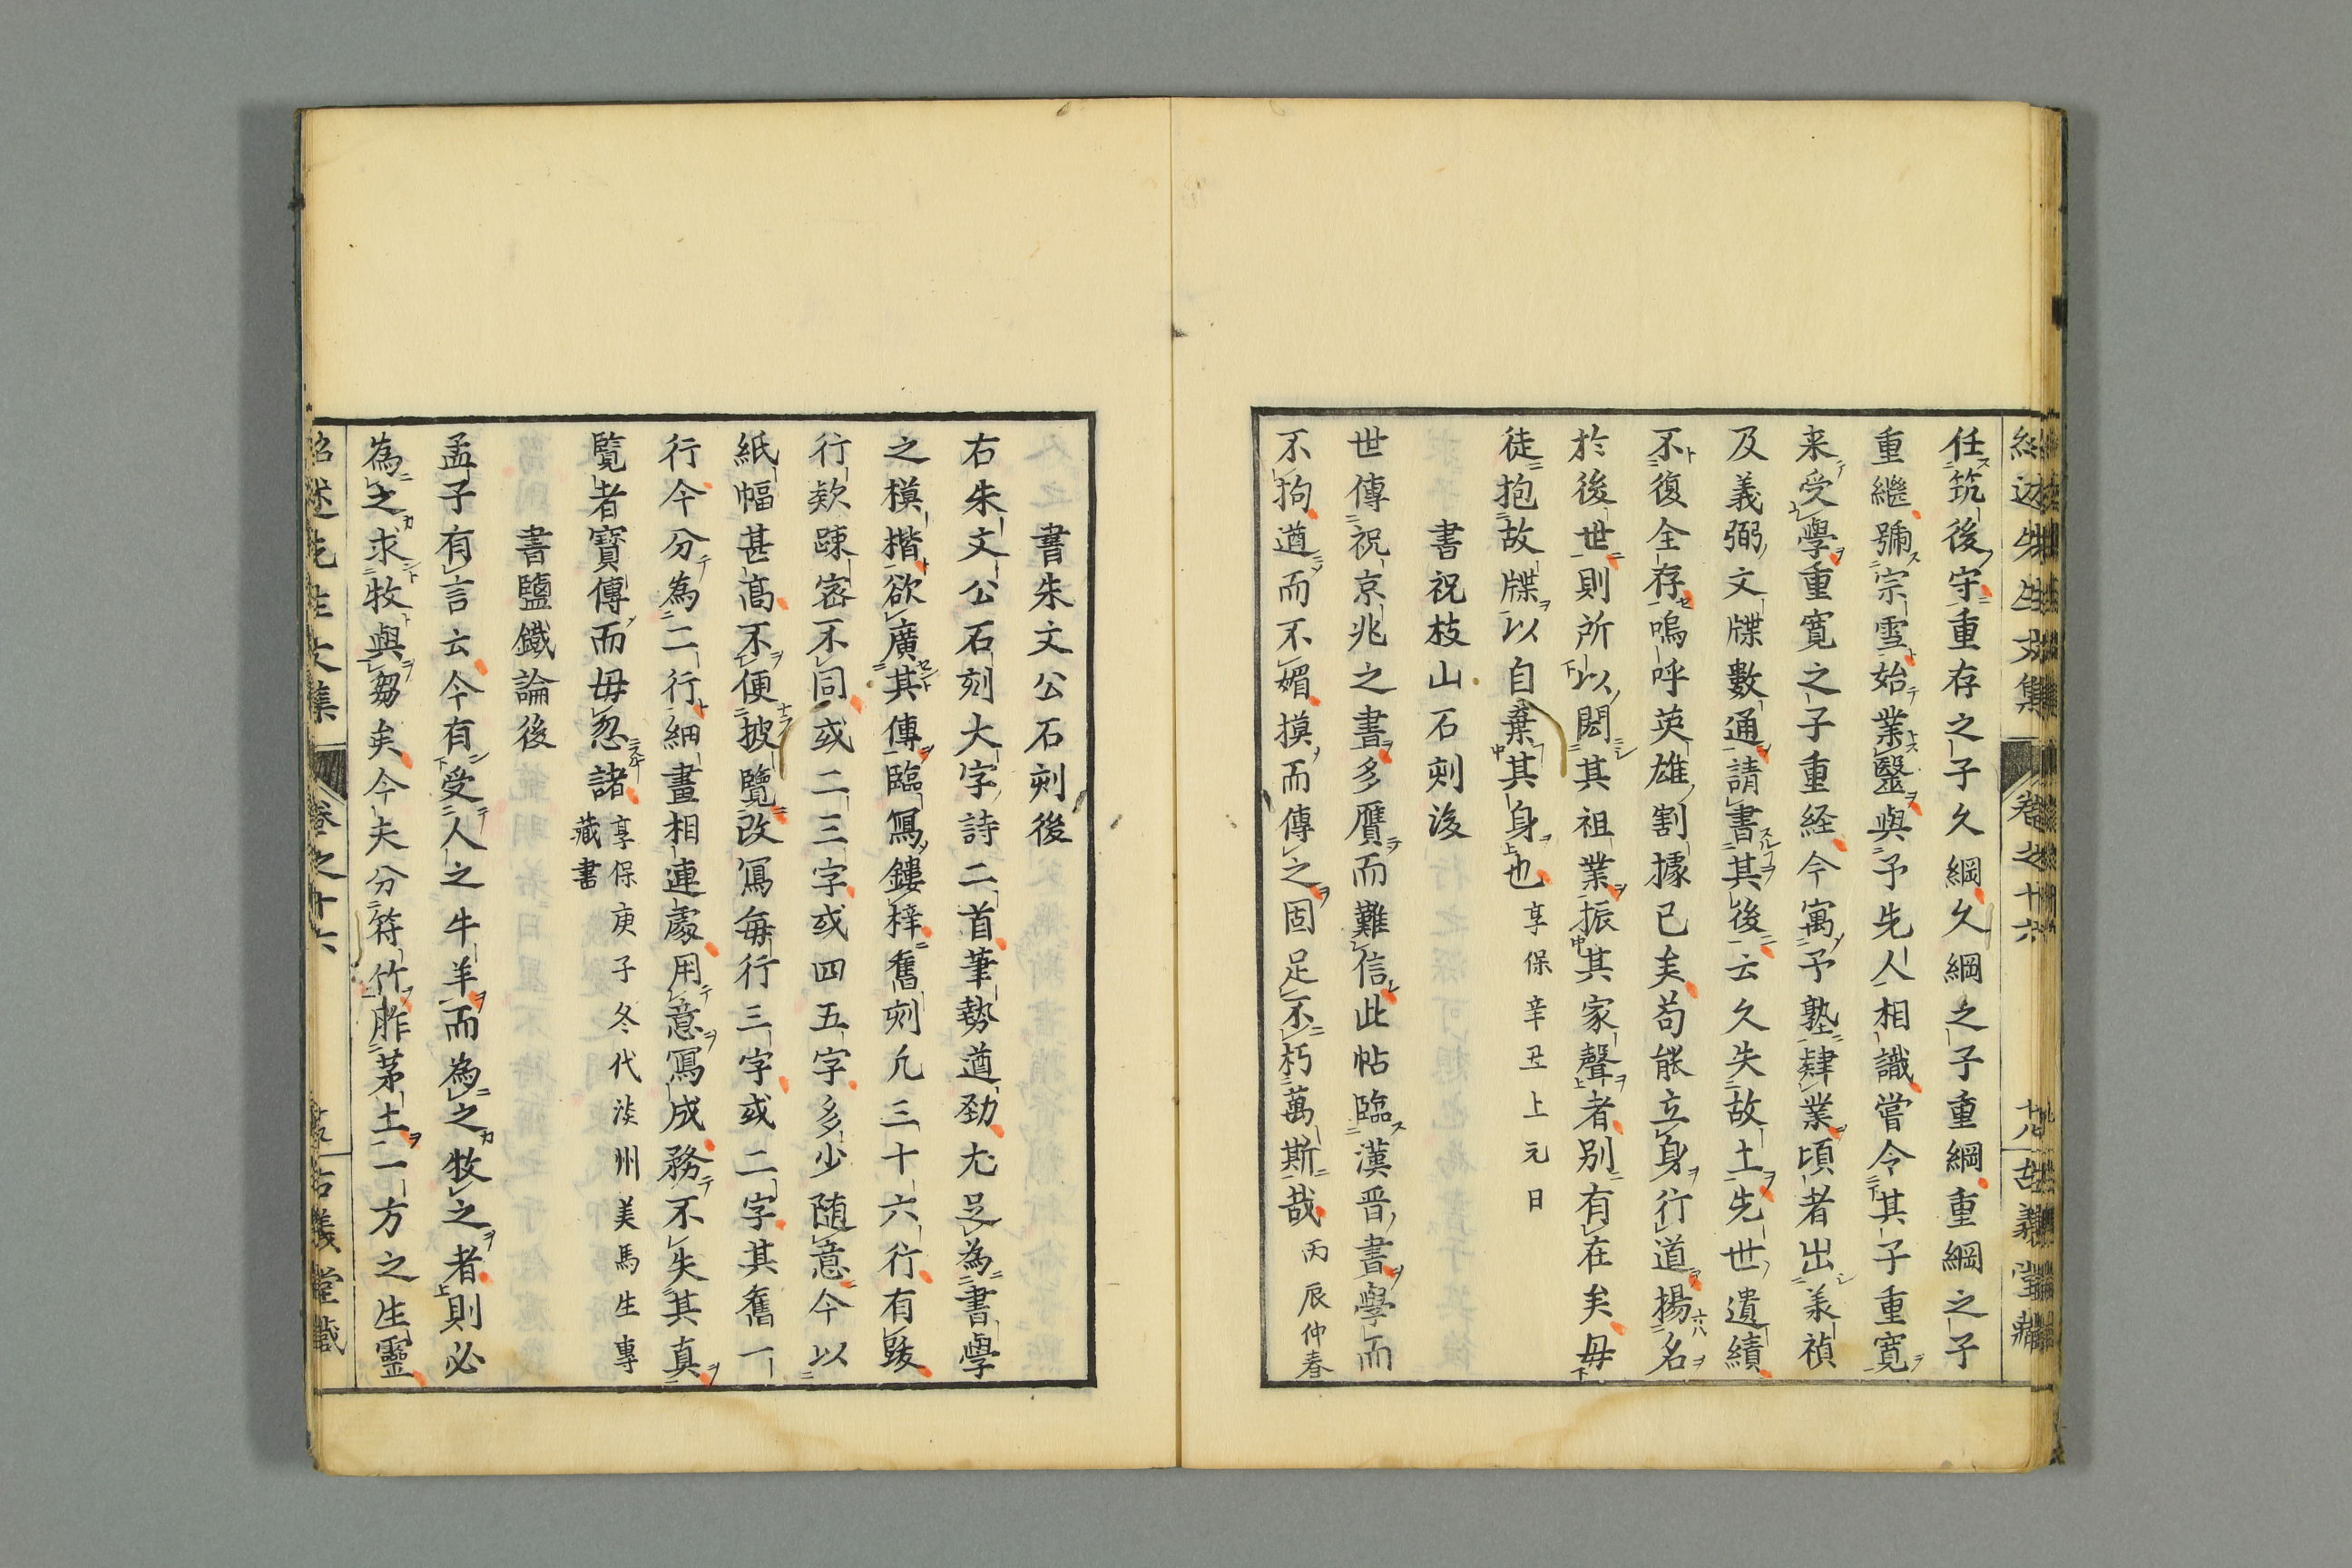 紹述先生文集 卷之十六 古義堂藏
任筑後守重存之子久綱久綱之子重綱重綱之子
重繼號宗雪始業醫與予先人相識嘗令其子重寬
来受學重寬之子重経今寓予塾肄業頃者出義禎
及義弼文牒數通請書其後云久失故土先世遺績
不復全存嗚呼英雄割據已矣苟能立身行道揚名
於後世則所以閎其祖業振其家聲者别有在矣毋
徒抱故牒以自棄其身也 享保辛丑上元日
書祝枝山石刻後
世傳祝京兆之書多贋而難信此帖臨漢晋書學而
不拘遒而不媚摸而傳之固足不朽萬斯哉 丙辰仲春
書朱文公石刻後
右朱文公石刻大字詩二首筆勢遒勁尤足為書學
之模楷欲廣其傳臨寫鏤梓舊刻凢三十六行有跋
行欵踈宻不同或二三字或四五字多少随意今以
紙幅甚髙不便披覽改寫每行三字或二字其舊一
行今分為二行細畫相連處用意寫成務不失其真
覧者寳傳而毋忽諸 享保庚子冬代淡州美馬生專
藏書
書鹽鐵論後
孟子有言云今有受人之牛羊而為之牧之者則必
為之求牧與芻矣今夫分符竹胙茅土一方之生靈
紹述先生文集 卷之十六 古義堂藏